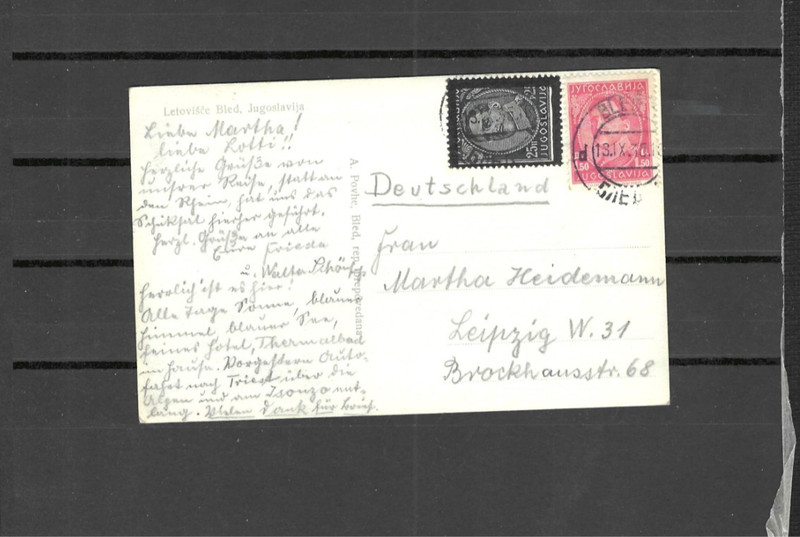 Letovišče Bled, Jugoslavija
Liebe Martha!
liebe Lotti!!
herzliche Grüße von
unsrer Reise, statt an
den Rhein, hat uns das
Schicksal hierher geführt.
Herzl. Grüße an alle
Eure Frieda
u. Walter
Herrlich ist es hier!
Alle Tage Sonne, blauer
Himmel, blauer See,
feines Hotel, Thermalbad
im Hause. Vorgestern Auto-
fahrt nach Triest über die
Alpen und am Isonzo ent-
lang. Vielen Dank für Brief.
A. Povhe, Bled, repr. prepovedana
Deutschland
Frau
Martha Heidemann
Leipzig W. 31
Brockhausstr. 68
25
JUGOSLAVIJA
ЈУГОСЛАВИЈА
1.50 1.50
JUGOSLAVIJA
BLED
d 13.IX.3
БЛЕД